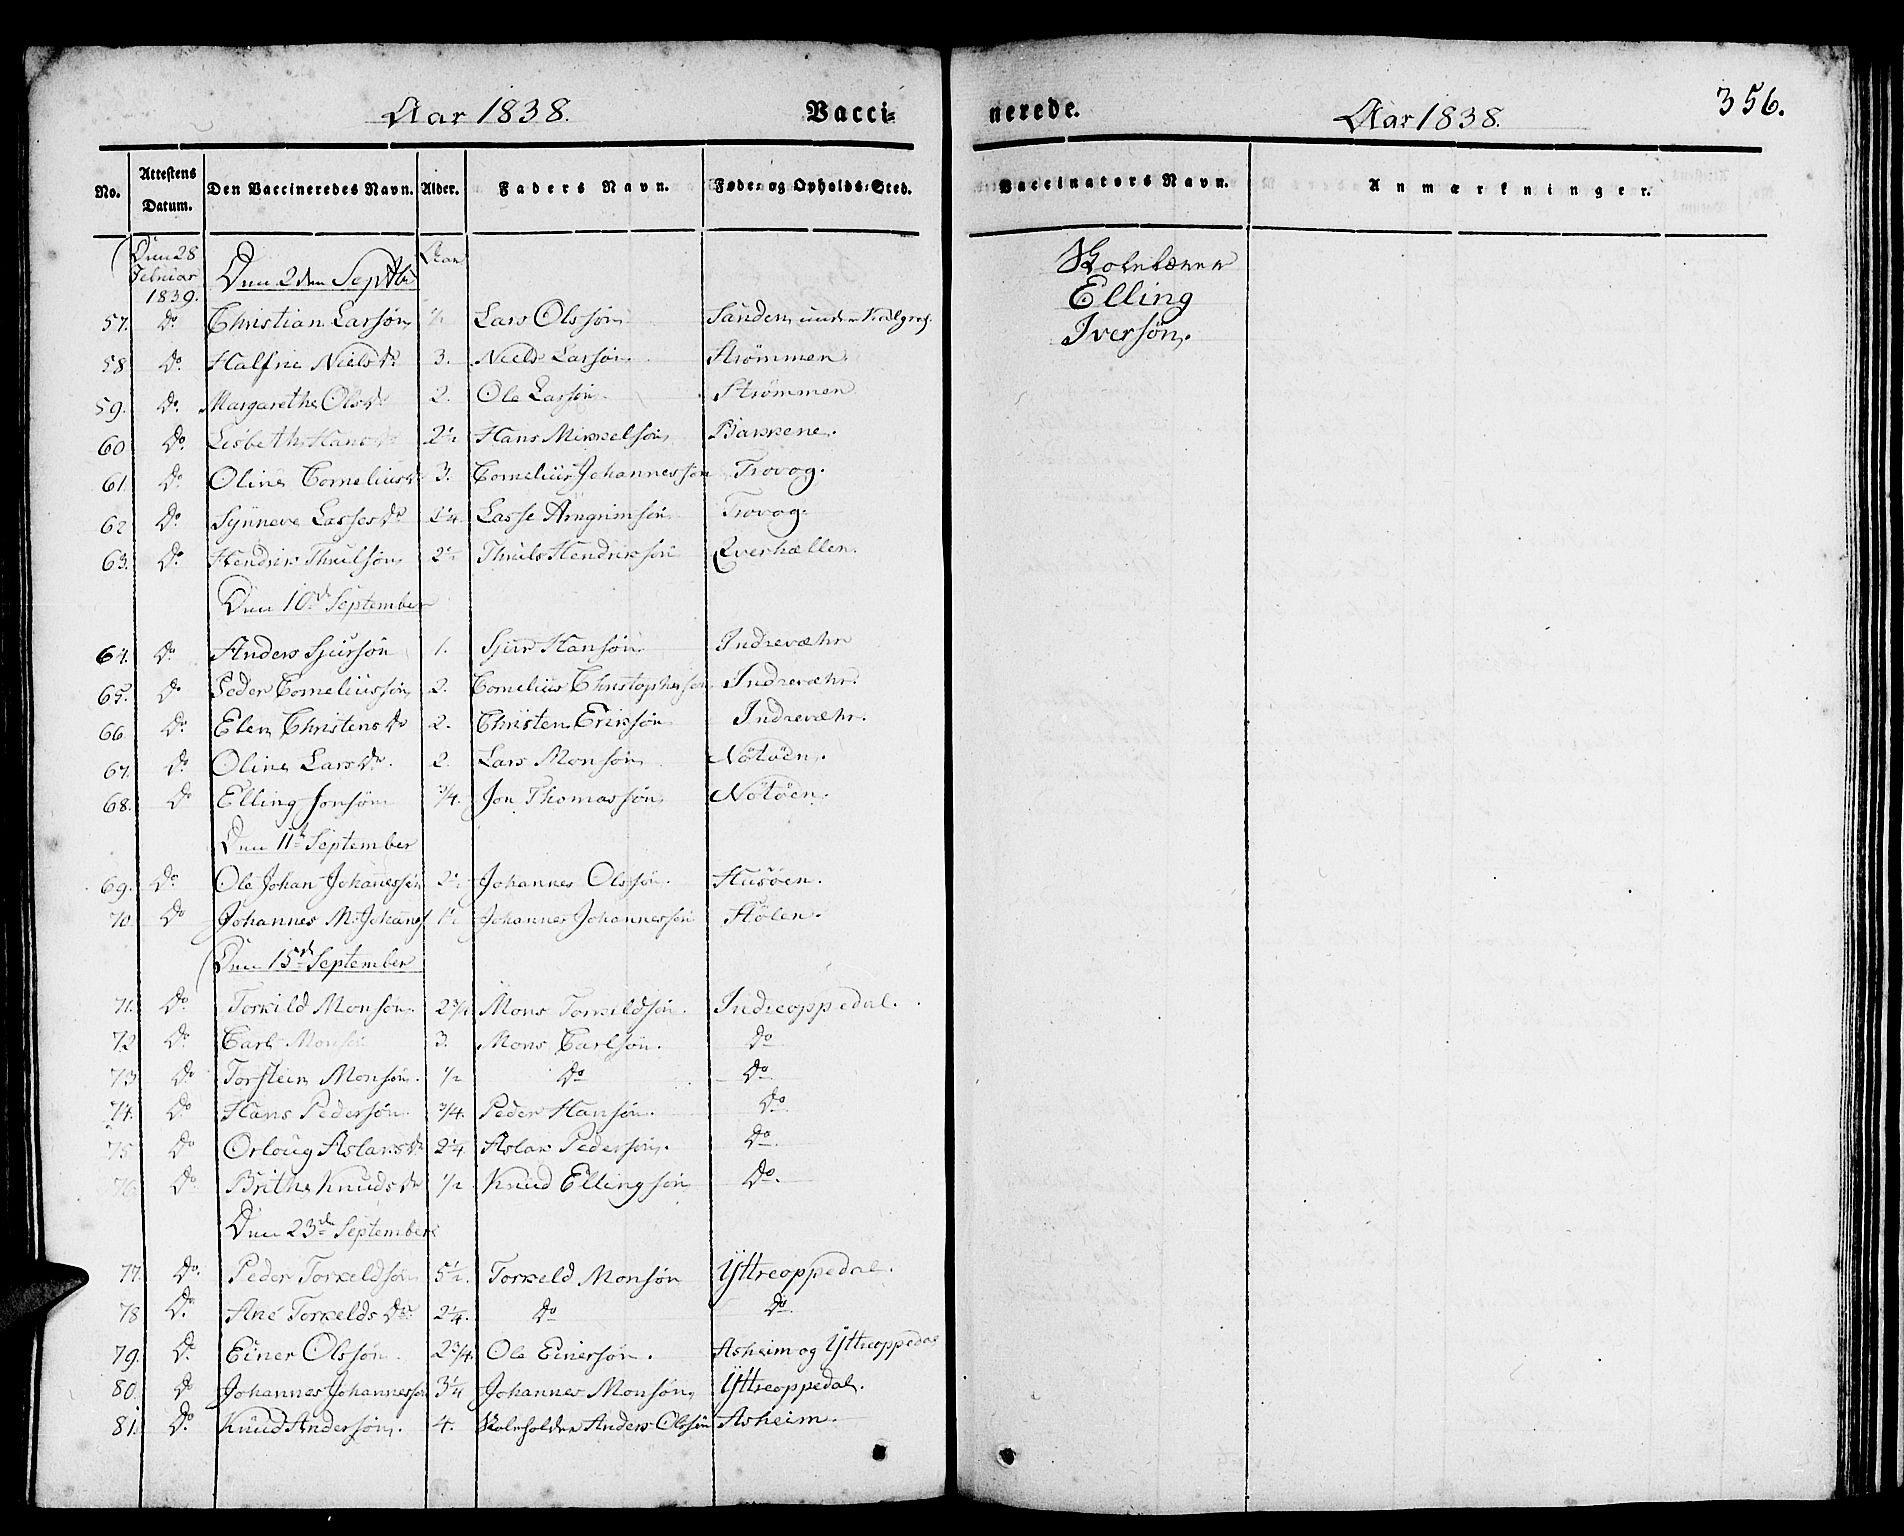 Aar 1838. Vacci-
No. Attestens Datum. Den Vaccineredes Navn. Alder. Faders Navn. Føde- og Opholds-Sted.
Den 28 Februar 1839. Den 2den Septbr Aar
57. Do Christian Larsøn ½ Lars Olssøn Sanden under
58 Do Halfrie Nielsdr 3. Niels Larsøn. Strømmen.
59. Do. Margarethe Olsdr 2. Ole Larsøn. Strømmen
60 Do Lisbeth Hansdr 2½ Hans Mikkelsøn Bakkene.
61. Do Oline Corneliusdr 3. Cornelius Johannessøn Trovog.
62 Do Synneve Lassesdr 2¼ Lasse Arngrimsøn Trovog.
63. Do Hendrik Thuelsøn 2½ Thuels Hendriksøn Qverhællen.
Den 10de September
64. Do Anders Sjursøn 1. Sjur Hansøn. Indrevæhr
65. Do Peder Corneliussøn 2. Cornelius Christophersøn Indrevæhr.
66 Do Elen Christensdr 2. Christen Eriksøn Indrevæhr.
67. Do Oline Larsdr. 2. Lars Monsøn Nötöen.
68. Do Elling Jonsøn ¾. Jon Thomassøn Nötöen.
Den 11te September
69. Do Ole Johan Johanessøn 2½ Johannes Olssøn. Husöen.
70 Do Johannes M. Johanes 1½ Johannes Johannessøn Hølen.
Den 15de September
71. Do Torkild Monsøn. 2¾ Mons Torkildsøn. Indreoppedal.
72 Do Carl Monsøn 3. Mons Carlsøn. Do
73 Do Torstein Monsøn. ½ Do Do
74. Do Hans Pedersøn. ¾. Peder Hansøn. Do
75 Do Orloug Aslaksdr 2¼ Aslak Pedersøn. Do
76 Do Brithe Knudsdr ½ Knud Ellingsøn Do.
Den 23de September
77. Do. Peder Torkeldsøn 5½. Torkeld Monsøn Yttreoppedal.
78 Do Ane Torkelds Dr 2¼. Do Do
79. Do Einer Olssøn. 2¾. Ole Einersøn. Asheim og Yttreoppedal
80. Do Johannes Johannessøn 3¼ Johannes Monsøn Yttreoppedal.
81. Do Knud Andersøn. 4. Skoleholder Anders Olssøn Asheim.
nerede. Aar 1838. 356.
Vaccinators Navn. Anmærkninger.
Skolelærer
Elling
Iversøn.